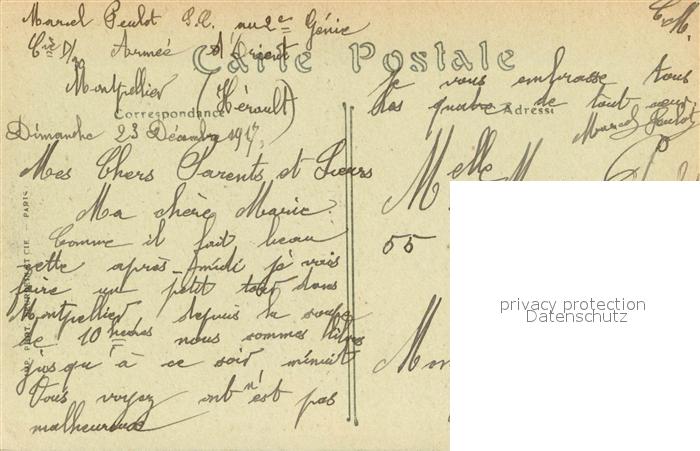 Marcel Peulot S.R. au 2e Génie
Cie D/1 Armée d'Orient
Montpellier (Hérault)
C. M.
Carte Postale
Correspondance
Adresse
Dimanche 23 Décembre 1917
Mes Chers Parents et Sœurs
Ma chère Marie.
Comme il fait beau
cette après-midi je vais
faire un petit tour dans
Montpellier depuis la soupe
de 10 heures nous sommes libres
jusqu'à ce soir minuit
Vous voyez ont n'est pas
malheureux
Je vous embrasse tous
les quatre de tout cœur
Marcel Peulot
Melle M
55
Mon
PARIS
privacy protection
Datenschutz